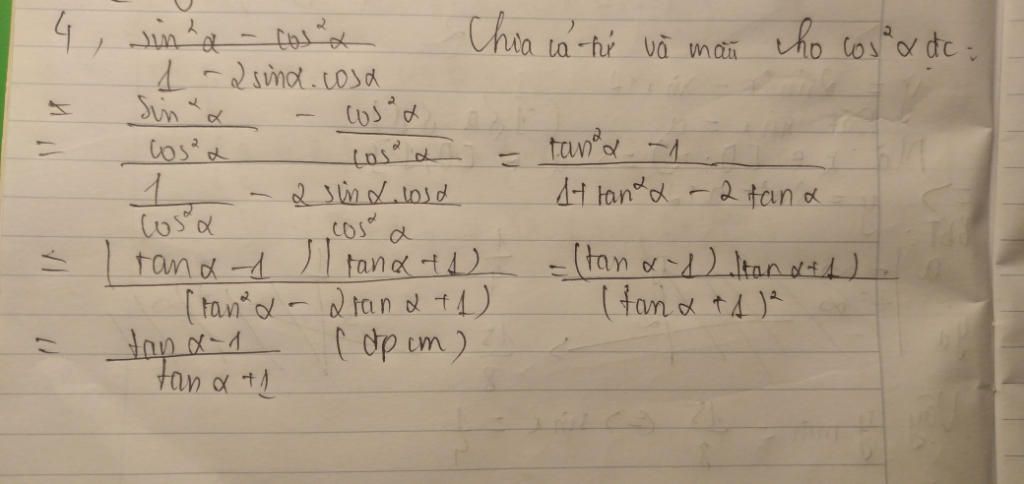 4, (sin²α - cos²α)/(1 - 2sinα.cosα) Chia cả tử và mẫu cho cos²α đc:
= (sin²α/cos²α - cos²α/cos²α)/(1/cos²α - 2sinα.cosα/cos²α) = (tan²α - 1)/(1 + tan²α - 2tanα)
= (tanα - 1)(tanα + 1)/(tan²α - 2tanα + 1) = (tanα - 1).(tanα + 1)/(tanα + 1)²
= (tanα - 1)/(tanα + 1) (đpcm)